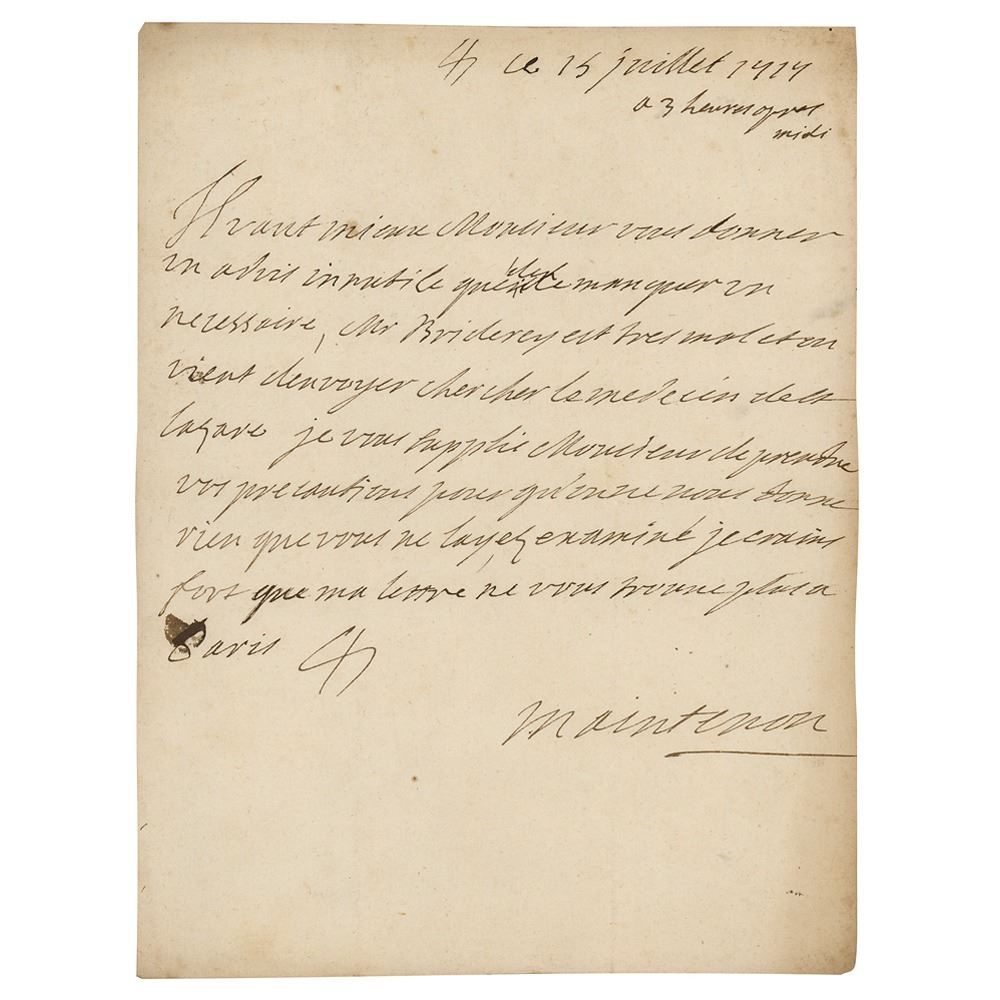 ce 15 juillet 1717
a 3 heures apres
midi
Il vaut mieux Monsieur vous donner
un advis innutile que de manquer un
necessaire, Mr Briderey est tres mal et on
vient denvoyer chercher le medecin de st
lazare je vous supplie Monsieur de prendre
vos precautions pour qu'on ne nous donne
rien que vous ne layez examiné je crains
fort que ma lettre ne vous trouve plus a
Paris
Maintenon